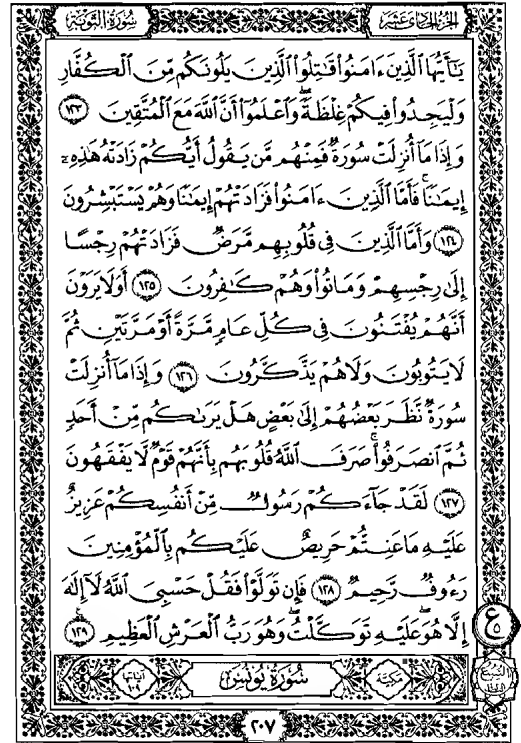 الجزء الحادي عشر
سورة التوبة
يَـٰٓأَيُّهَا ٱلَّذِينَ ءَامَنُوا۟ قَـٰتِلُوا۟ ٱلَّذِينَ يَلُونَكُم مِّنَ ٱلْكُفَّارِ
وَلْيَجِدُوا۟ فِيكُمْ غِلْظَةً ۚ وَٱعْلَمُوٓا۟ أَنَّ ٱللَّهَ مَعَ ٱلْمُتَّقِينَ ١٢٣
وَإِذَا مَآ أُنزِلَتْ سُورَةٌ فَمِنْهُم مَّن يَقُولُ أَيُّكُمْ زَادَتْهُ هَـٰذِهِۦٓ
إِيمَـٰنًا ۚ فَأَمَّا ٱلَّذِينَ ءَامَنُوا۟ فَزَادَتْهُمْ إِيمَـٰنًا وَهُمْ يَسْتَبْشِرُونَ
١٢٤ وَأَمَّا ٱلَّذِينَ فِى قُلُوبِهِم مَّرَضٌ فَزَادَتْهُمْ رِجْسًا
إِلَىٰ رِجْسِهِمْ وَمَاتُوا۟ وَهُمْ كَـٰفِرُونَ ١٢٥ أَوَلَا يَرَوْنَ
أَنَّهُمْ يُفْتَنُونَ فِى كُلِّ عَامٍ مَّرَّةً أَوْ مَرَّتَيْنِ ثُمَّ
لَا يَتُوبُونَ وَلَا هُمْ يَذَّكَّرُونَ ١٢٦ وَإِذَا مَآ أُنزِلَتْ
سُورَةٌ نَّظَرَ بَعْضُهُمْ إِلَىٰ بَعْضٍ هَلْ يَرَىٰكُم مِّنْ أَحَدٍ
ثُمَّ ٱنصَرَفُوا۟ ۚ صَرَفَ ٱللَّهُ قُلُوبَهُم بِأَنَّهُمْ قَوْمٌ لَّا يَفْقَهُونَ
١٢٧ لَقَدْ جَآءَكُمْ رَسُولٌ مِّنْ أَنفُسِكُمْ عَزِيزٌ
عَلَيْهِ مَا عَنِتُّمْ حَرِيصٌ عَلَيْكُم بِٱلْمُؤْمِنِينَ
رَءُوفٌ رَّحِيمٌ ١٢٨ فَإِن تَوَلَّوْا۟ فَقُلْ حَسْبِىَ ٱللَّهُ لَآ إِلَـٰهَ
إِلَّا هُوَ ۖ عَلَيْهِ تَوَكَّلْتُ ۖ وَهُوَ رَبُّ ٱلْعَرْشِ ٱلْعَظِيمِ ١٢٩
ع
٥
مكية
سورة يونس
آياتها ١٠٩
٢٠٧